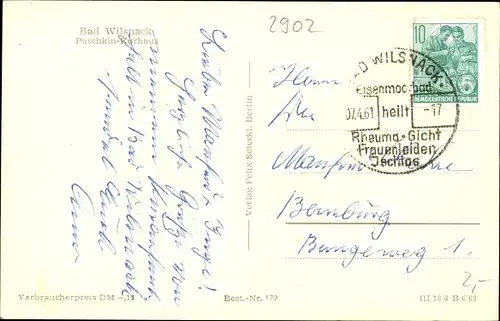 2902
Bad Wilsnack
Puschkin-Kurhaus
Lieber Manfred, Inge!
Herzliche Grüße von
meinem Kuraufent-
halt in Bad Wilsnack
sendet Euch
Anna
Verlag Felix Setecki, Berlin
Verbraucherpreis DM -,15
Best.-Nr. 170
10
DEUTSCHE DEMOKRATISCHE REPUBLIK
BAD WILSNACK
Eisenmoorbad
07.4.61 heilt -17
Rheuma-Gicht
Frauenleiden
Ischias
Herrn
Manfred
Bernburg
Bungeweg 1.
2,-
III 18 6 B 6/60